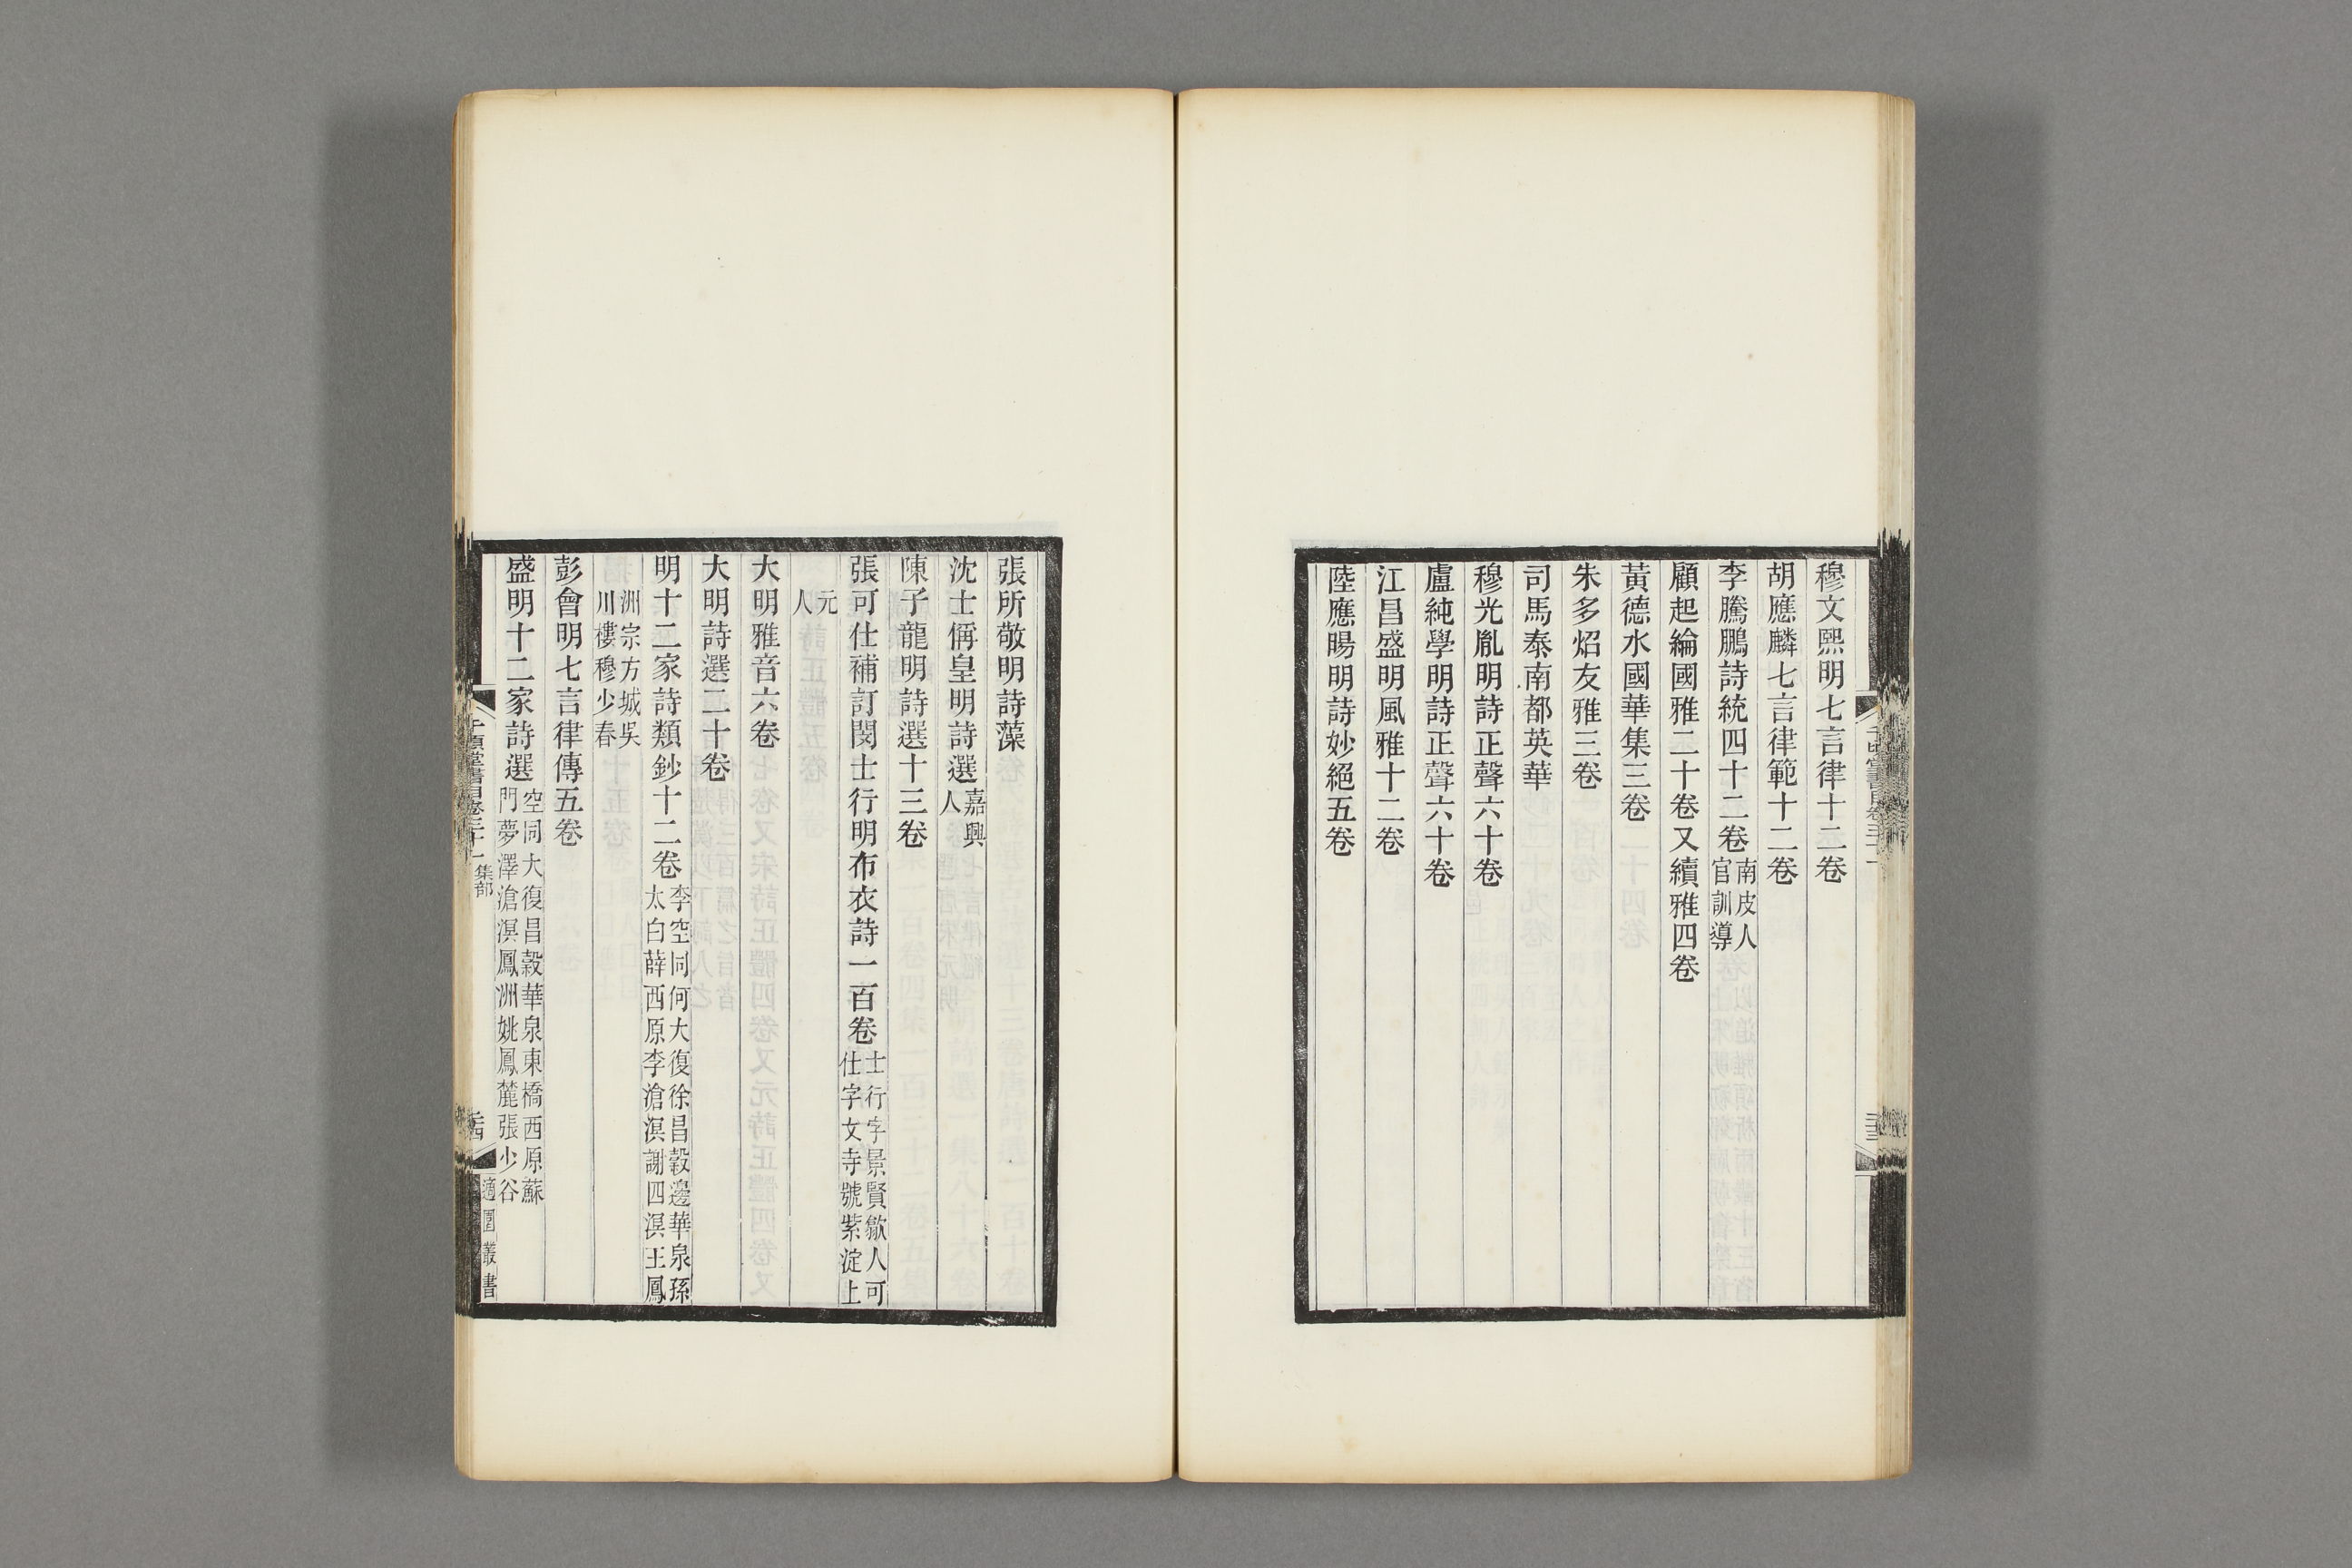 穆文熙明七言律十二卷
胡應麟七言律範十二卷
李騰鵬詩統四十二卷南皮人官訓導
顧起綸國雅二十卷又續雅四卷
黃德水國華集三卷
朱多炤友雅三卷
司馬泰南都英華
穆光胤明詩正聲六十卷
盧純學明詩正聲六十卷
江昌盛明風雅十二卷
陸應暘明詩妙絕五卷
張所敬明詩藻
沈士偁皇明詩選嘉興人
陳子龍明詩選十三卷
張可仕補訂閔士行明布衣詩一百卷士行字景賢歙人可仕字文寺號紫淀上
元人
大明雅音六卷
大明詩選二十卷
明十二家詩類鈔十二卷李空同何大復徐昌穀邊華泉孫太白薛西原李滄溟謝四溟王鳳
洲宗方城吳川樓穆少春
彭會明七言律傳五卷
盛明十二家詩選空同大復昌穀華泉東橋西原蘇門夢澤滄溟鳳洲姚鳳麓張少谷
千頃堂書目卷三十一 集部
適園叢書